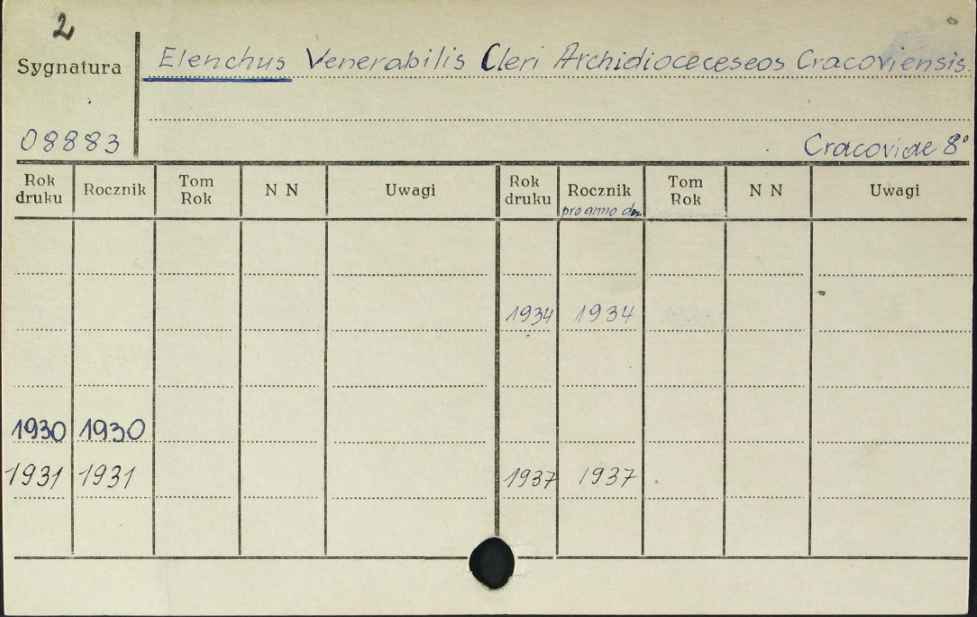 2
Sygnatura
Elenchus Venerabilis Cleri Archidioeceseos Cracoviensis.
08883
Cracoviae 8°
Rok druku Rocznik Tom Rok N N Uwagi Rok druku Rocznik pro anno dn. Tom Rok N N Uwagi
1934 1934
1930 1930
1931 1931 1937 1937